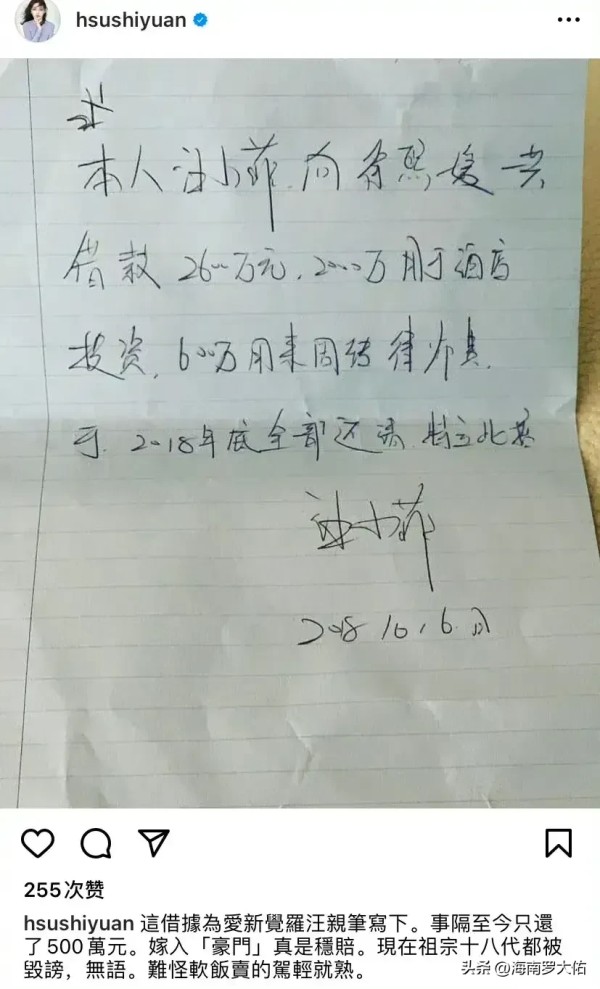 hsushiyuan
本人汪小菲,向徐熙媛共
借款2600万元,2000万用于酒店
投资,600万用来周转律师费,
于2018年底全部还清 特立此据
汪小菲
2018 10,6日
255次赞
hsushiyuan 這借據為愛新覺羅汪親筆寫下。事隔至今只還
了500萬元。嫁入「豪門」真是穩賠。現在祖宗十八代都被
毀謗,無語。難怪軟飯賣的駕輕就熟。
头条 @海南罗大佑